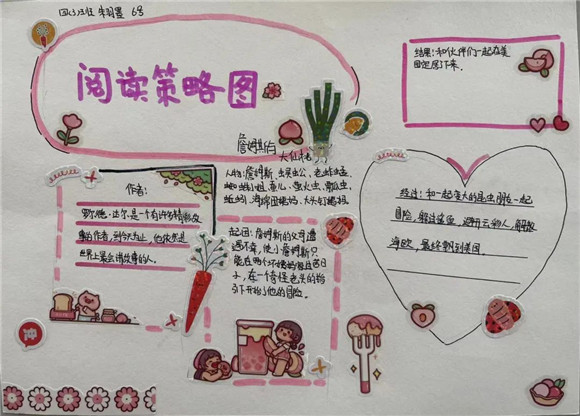 四(3)班 朱羽墨 6号
阅读策略图
詹姆斯与
大仙桃
结果:和伙伴们一起在美
国定居下来。
作者:
罗尔德·达尔是一个有许多精彩故
事的作者,到今天为止,他依然是
世界上最会讲故事的人。
人物:詹姆斯、
海绵团姨妈、大头钉姨妈
起因:詹姆斯的父母遭
遇不幸,使小詹姆斯只
能在两个坏姨妈家
子,在一个奇怪老头的指
引下开始了他的冒险。
经过:和一起变大的昆虫朋友一起
冒险,解决鲨鱼,避开云的人,解救
海欧,最终飘到美国。